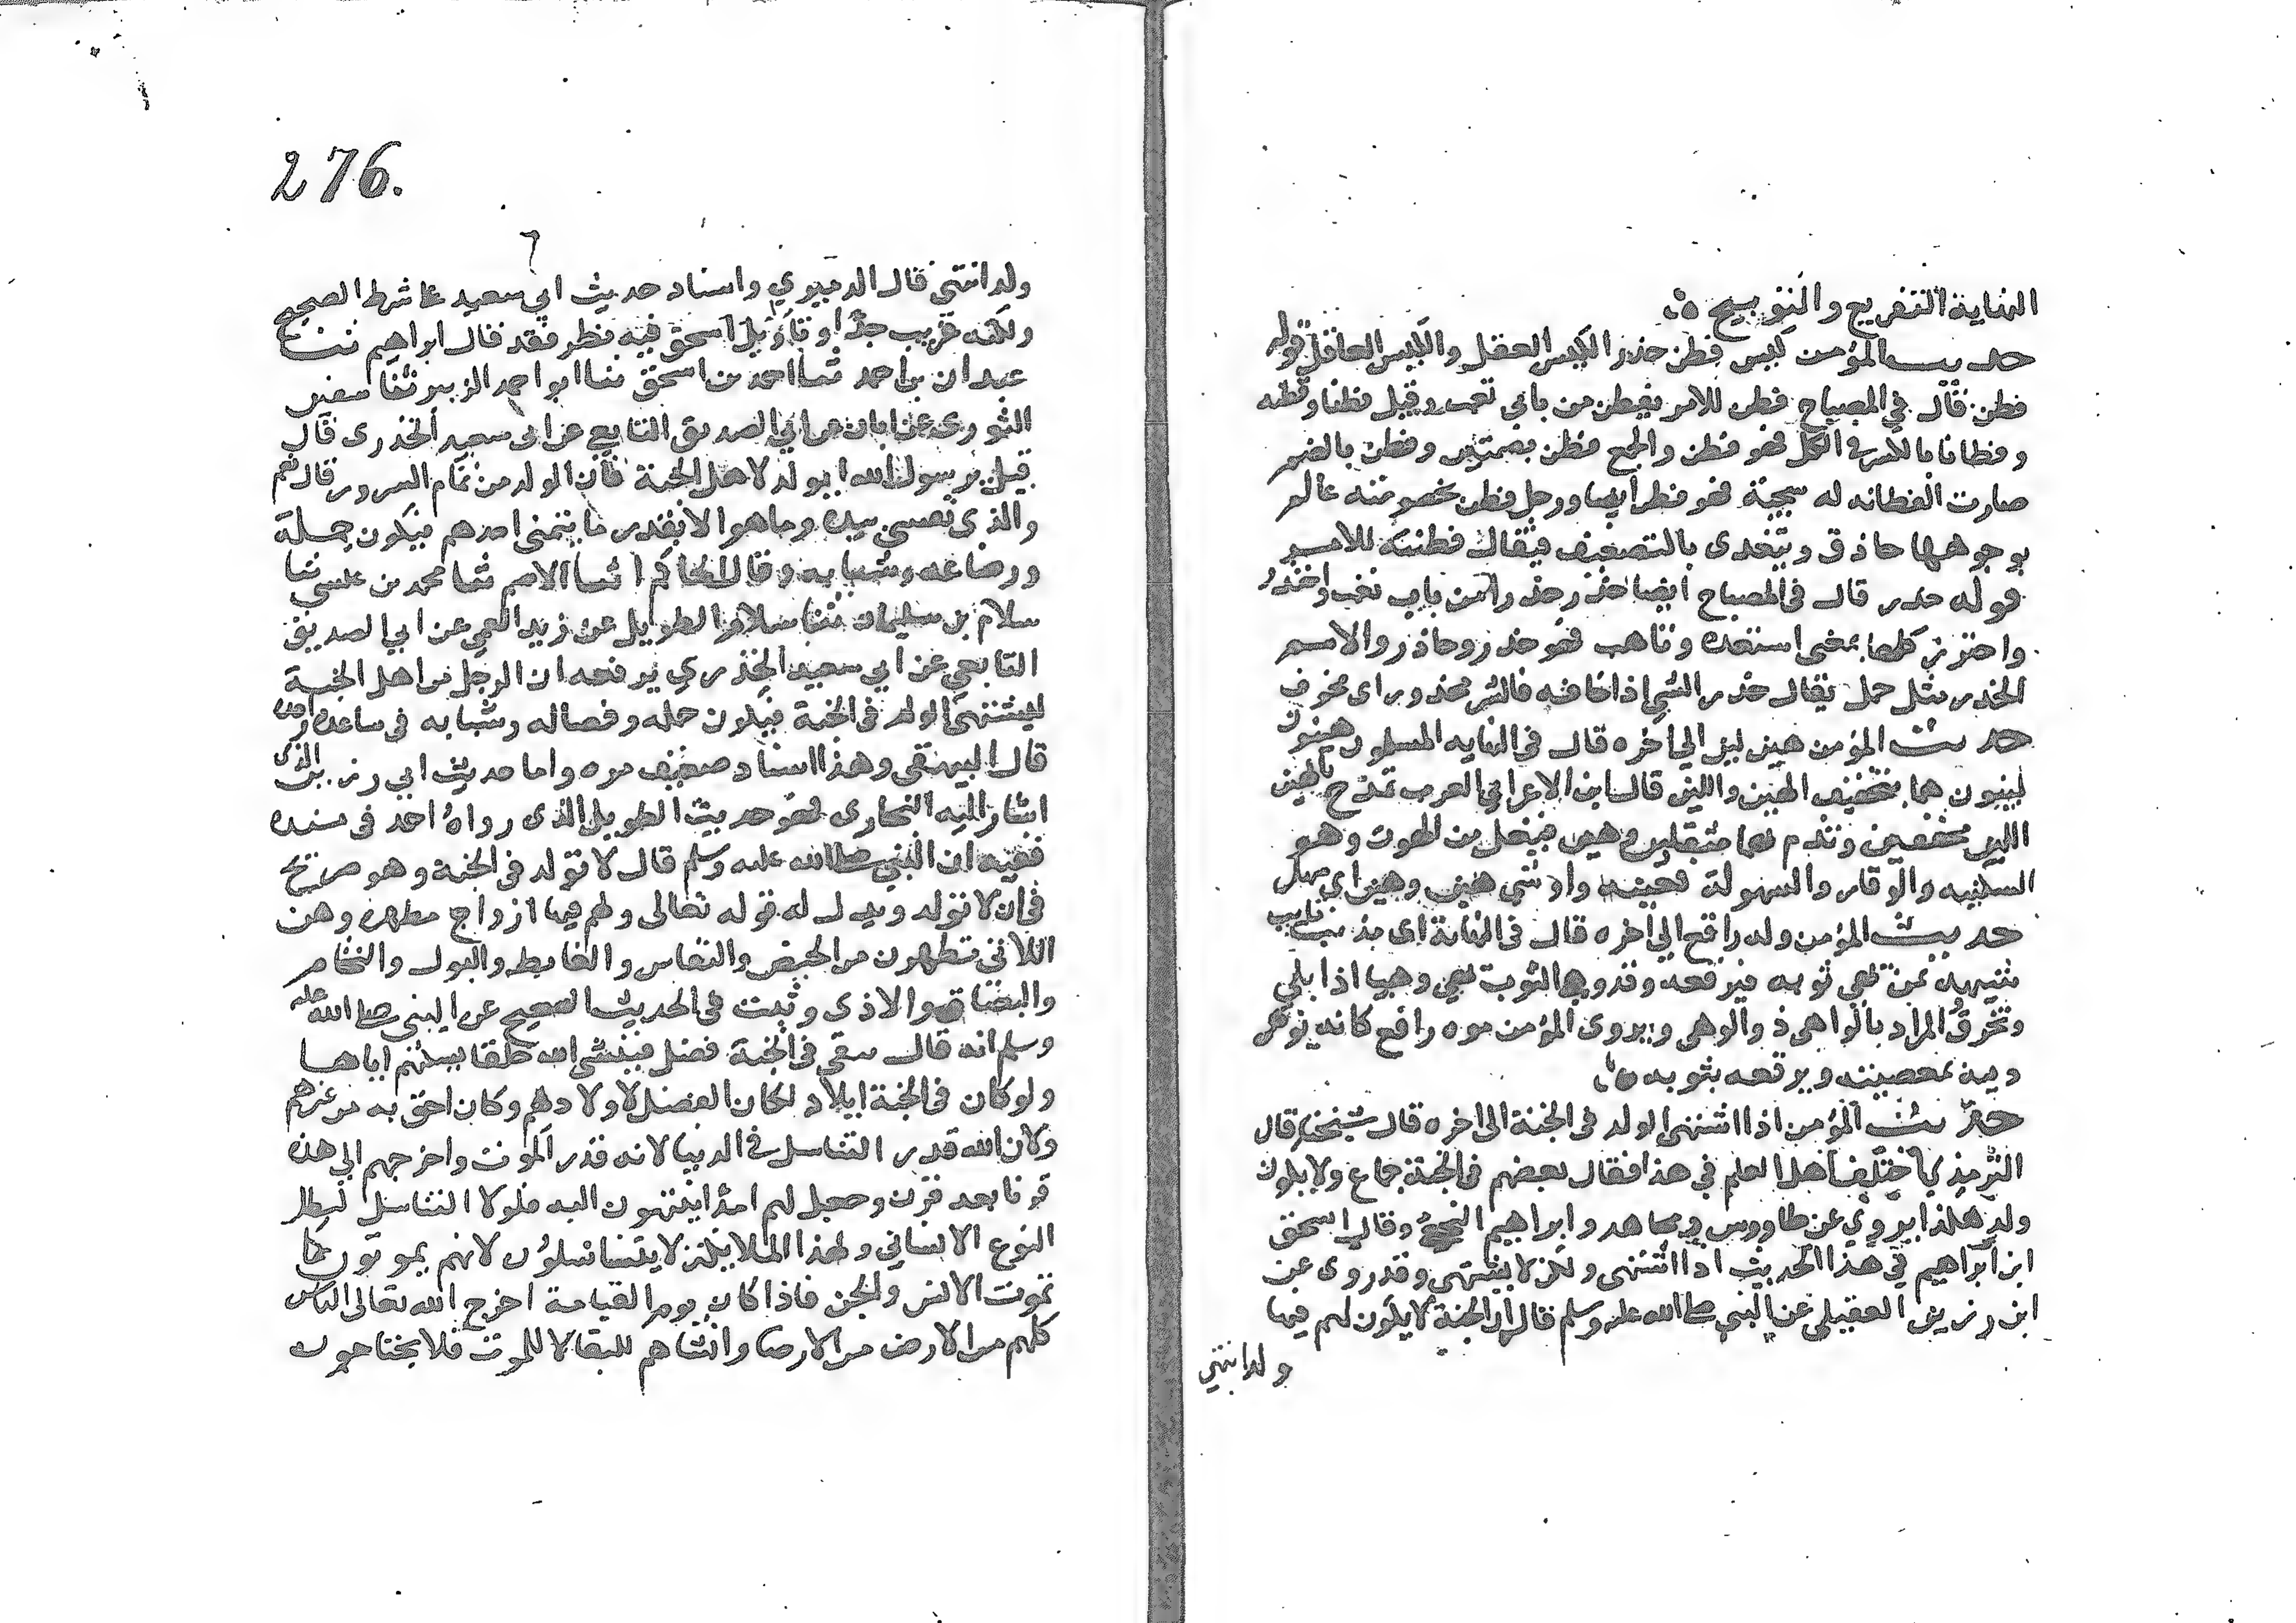 النهاية التقريع والتوبيخ ه
حديث المؤمن كيس فطن حذر الكيس العقل والكيس العاقل قوله
فطن قال في المصباح فطن للامر يفطن من بابي تعب وقتل فطنا وفطنه
وفطانا بالكسر في الكل فهو فطن والجمع فطن بضمتين وفطن بالضم
صارت الفطانه له سجية فهو فطن ايضا ورجل فطن بخصومته عالم
بوجوهها حاذق ويتعدى بالتضعيف فيقال فطنته للامر
قوله حذر قال في المصباح ايضا حذر حذرا من باب تعب واحتذر
واحترز كلها بمعنى استعد وتاهب فهو حذر وحاذر والاسم
الحذر مثل حمل يقال حذر الشي اذا خافه فالشي محذور اي مخوف
حديث المؤمن هين لين الى اخره قال في النهايه المسلمون هينون
لينون هما بتخفيف الهين واللين قال ابن الاعرابي العرب تمدح بالهين
اللين مخففين وتذم بهما مثقلين وهين فيعل من الهون وهو
السكينه والوقار والسهولة فعينه واو شي هين وهين اي سهل
حديث المؤمن واه راقع الى اخره قال في النهاية اي مذنب تايب
شبهه بمن يهي ثوبه فيرقعه وقد وهى الثوب يهي وهيا اذا بلي
وتخرق المراد بالواهي ذو الوهي ويروى المؤمن موه راقع كانه يوهي
دينه بمعصيته ويرقعه بتوبه ه
حديث المؤمن اذا اشتهى الولد في الجنة الى اخره قال شيخنا قال
الترمذي اختلف اهل العلم في هذا فقال بعضهم في الجنة جماع ولا يكون
ولد هكذا يروي عن طاووس ومجاهد وابراهيم النخعي وقال اسحق
ابن ابراهيم في هذا الحديث اذا اشتهى ولكن لا يشتهى وقد روى عن
ابن رزين العقيلي عن النبي صلى الله عليه وسلم قال ان الجنة لا يكون لهم فيها
ولد انتهى
276.
ولد انتهى قال الدميري واسناد حديث ابي سعيد على شرط الصحيح
ولكنه غريب جدا وتاويل اسحق فيه نظر فقد قال ابراهيم ثنا
عبدان بن احمد ثنا احمد بن اسحق ثنا ابو احمد الزبير ثنا سفين
الثوري عن ابان عن ابي الصديق التابعي عن ابي سعيد الخدري قال
قيل يرسول الله ايولد لاهل الجنة فان الولد من تمام السرور قال نعم
والذي نفسي بيده وما هو الا بقدر ما يتمنى احدهم فيكون حمله
ورضاعه وشبابه وقال الحاكم ثنا الاصم ثنا محمد بن عيسى ثنا
سلام بن سليمان ثنا سلام الطويل عن زيد العمي عن ابي الصديق
التابعي عن ابي سعيد الخدري يرفعه ان الرجل من اهل الجنة
ليشتهى الولد في الجنة فيكون حمله وفصاله وشبابه في ساعه واحدة
قال البيهقي وهذا اسناد ضعيف مره واما حديث ابي رزين الذي
اشار اليه البخاري فهو حديث الطويل الذي رواه احمد في مسنده
ففيه ان النبي صلى الله عليه وسلم قال لا تولد في الجنة وهو صريح
في ان لا تولد ويدل له قوله تعالى ولهم فيها ازواج مطهره وهن
اللاتي تطهرن من الحيض والنفاس والغايط والبول والنخام
والبصاق والاذى وثبت في الحديث الصحيح عن النبي صلى الله عليه
وسلم انه قال يبقى في الجنة فضل فينشى الله خلقا يسكنهم اياها
ولو كان في الجنة ايلاد لكان الفضل لاولادهم وكان احق به من غيرهم
ولان الله قدر التناسل في الدنيا لانه قدر الموت واخرجهم الى هذه
قرنا بعد قرن وجعل لهم امدا ينتهون اليه فلولا التناسل لبطل
النوع الانساني ولهذا الملايكة لا يتناسلون لانهم يموتون كما
تموت الانس والجن فاذا كان يوم القيامة اخرج الله تعالى الناس
كلهم من الارض من الارض وانشاهم للبقا لا للموت فلا يحتاجون